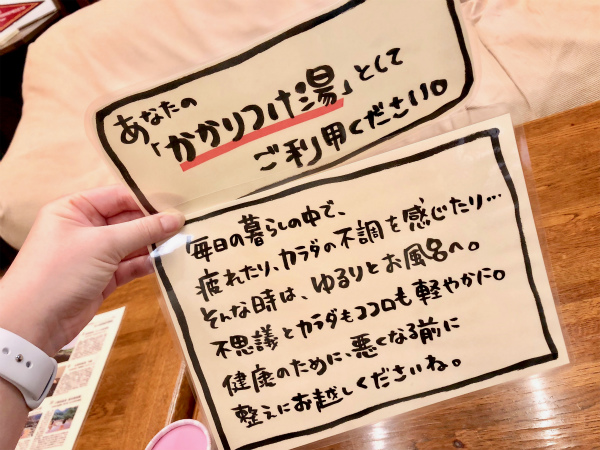 あなたの
「かかりつけ湯」として
ご利用ください。
毎日の暮らしの中で、
疲れたり、カラダの不調を感じたり…
そんな時は、ゆるりとお風呂へ。
不思議とカラダもココロも軽やかに。
健康のために、悪くなる前に
整えにお越しくださいね。